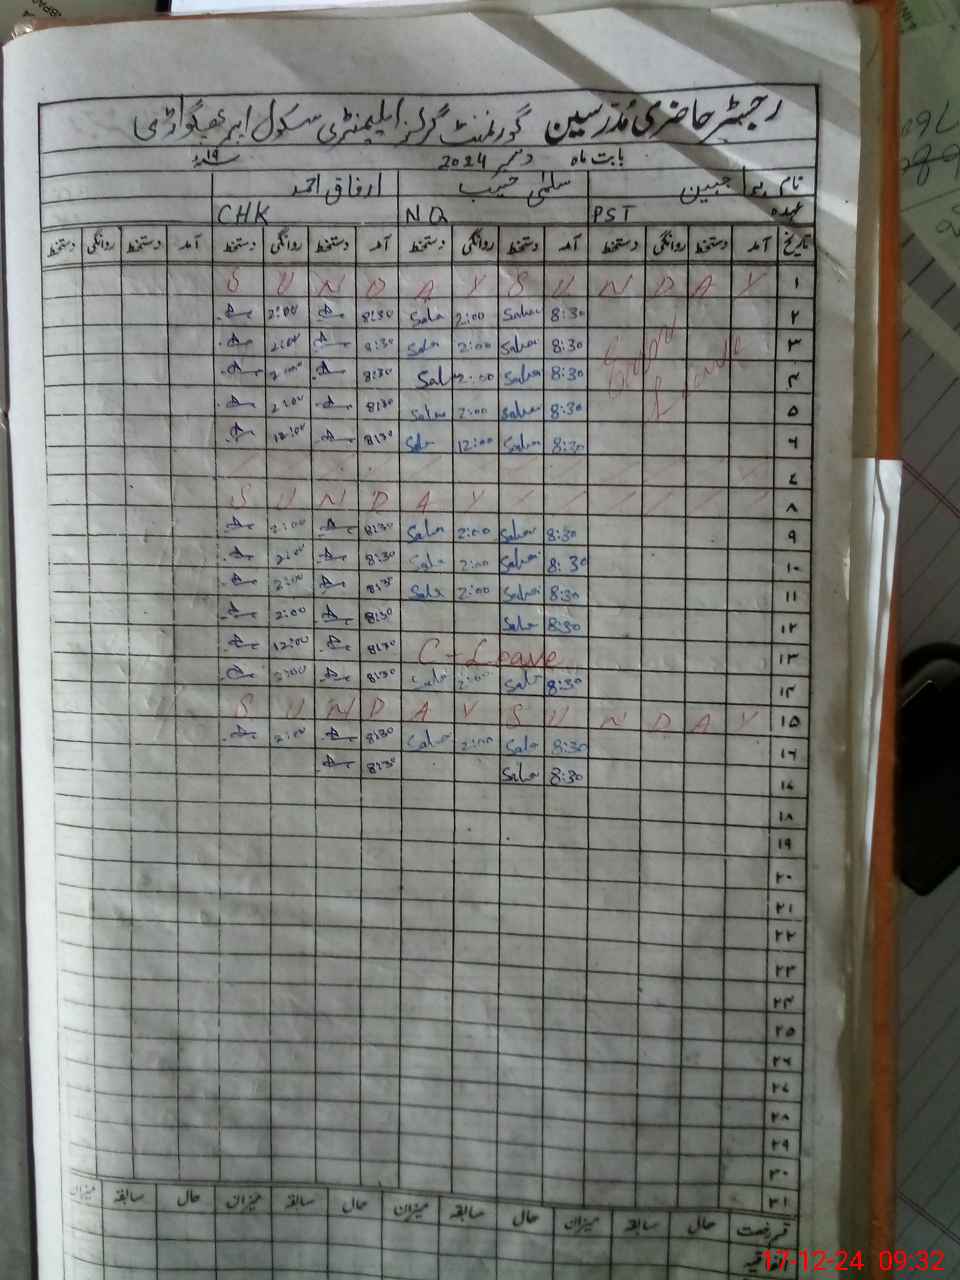 رجسٹر حاضری مدرسین گورنمنٹ گرلز ایلیمنٹری سکول
بابت ماہ دسمبر 2024 ۱۹ء
نام جبین سلمیٰ حبیب ارفاق احمد
عہدہ PST NQ CHK
تاریخ آمد دستخط روانگی دستخط آمد دستخط روانگی دستخط آمد دستخط روانگی دستخط آمد دستخط روانگی دستخط
۱ S U N D A Y S U N D A Y
۲ 8:30 Salma 2:00 Salma 8:30 2:00
۳ 8:30 Salma 2:00 Salma 8:30 2:00
۴ 8:30 Salma 2:00 Salma 8:30 2:00
Leave
۵ 8:30 Salma 2:00 Salma 8:30 2:00
۶ 8:30 Salma 12:00 Salma 8:30 12:00
۷
۸ S U N D A Y
۹ 8:30 Salma 2:00 Salma 8:30 2:00
۱۰ 8:30 Salma 2:00 Salma 8:30 2:00
۱۱ 8:30 Salma 2:00 Salma 8:30 2:00
۱۲ 8:30 Salma 8:30 2:00
۱۳ C-Leave 8:30 12:00
۱۴ 8:30 Salma 2:00 Salma 8:30 2:00
۱۵ S U N D A Y S U N D A Y
۱۶ 8:30 Salma 2:00 Salma 8:30 2:00
۱۷ 8:30 Salma 8:30
۱۸
۱۹
۲۰
۲۱
۲۲
۲۳
۲۴
۲۵
۲۶
۲۷
۲۸
۲۹
۳۰
۳۱
قسم رخصت حال سابقہ میزان حال سابقہ میزان حال سابقہ میزان حال سابقہ میزان
17-12-24 09:32